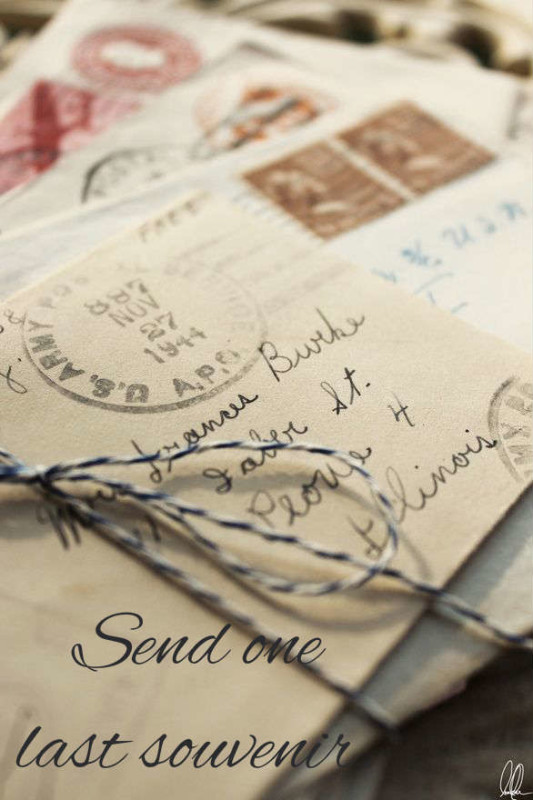 FREE
U.S. ARMY P.O.
887
NOV
27
1944
A.P.O.
Frances Burke
Faber St.
Peoria 4
Illinois
U.S.A
Send one
last souvenir